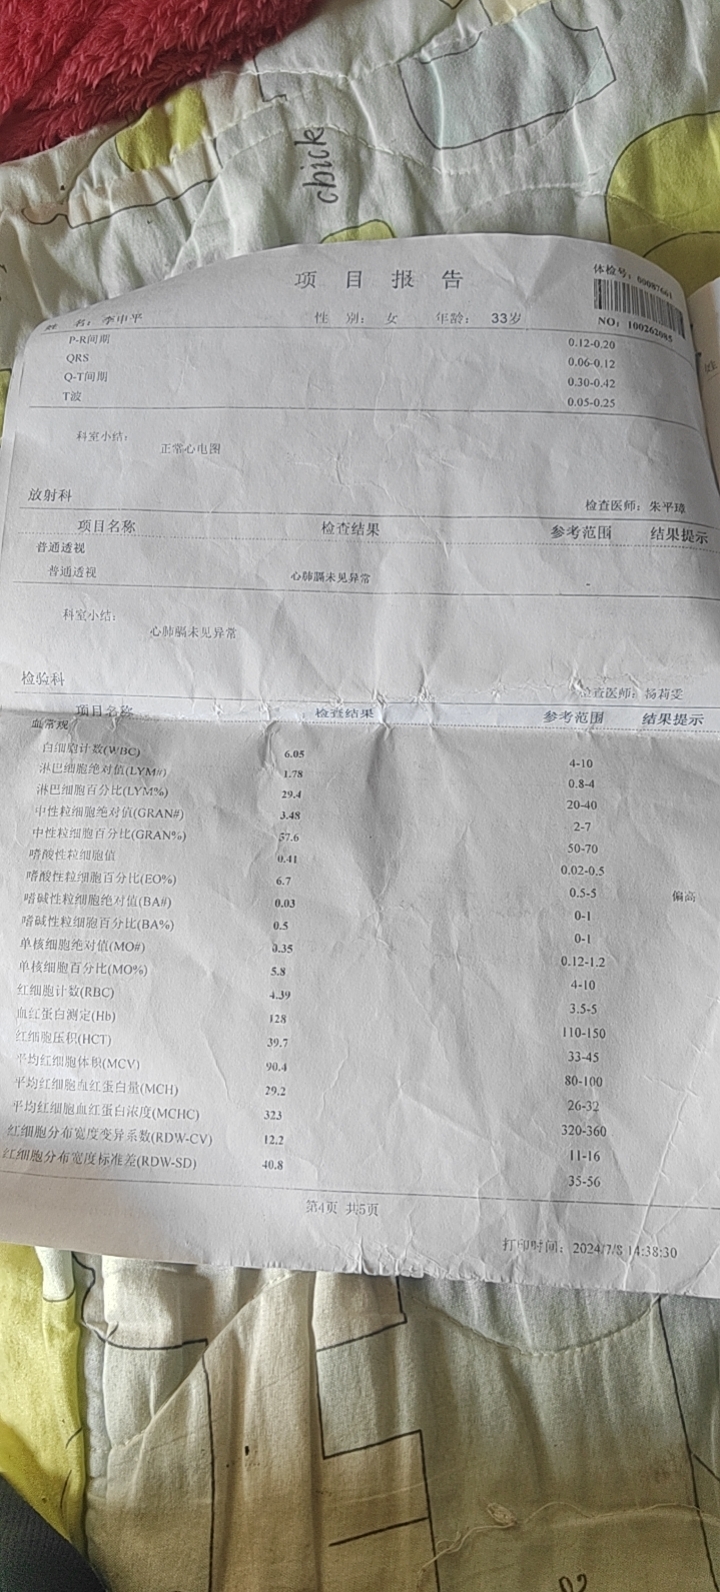 chick
项目报告
体检号：00087661
NO：100262085
姓 名：李中平 性 别：女 年龄：33岁
P-R间期 0.12-0.20
QRS 0.06-0.12
Q-T间期 0.30-0.42
T波 0.05-0.25
科室小结：
正常心电图
放射科 检查医师：朱平璋
项目名称 检查结果 参考范围 结果提示
普通透视
普通透视 心肺膈未见异常 -
科室小结：
心肺膈未见异常
检验科 检查医师：杨莉雯
项目名称 检查结果 参考范围 结果提示
血常规
白细胞计数(WBC) 6.05 4-10
淋巴细胞绝对值(LYM#) 1.78 0.8-4
淋巴细胞百分比(LYM%) 29.4 20-40
中性粒细胞绝对值(GRAN#) 3.48 2-7
中性粒细胞百分比(GRAN%) 57.6 50-70
嗜酸性粒细胞值 0.41 0.02-0.5
嗜酸性粒细胞百分比(EO%) 6.7 0.5-5 偏高
嗜碱性粒细胞绝对值(BA#) 0.03 0-1
嗜碱性粒细胞百分比(BA%) 0.5 0-1
单核细胞绝对值(MO#) 0.35 0.12-1.2
单核细胞百分比(MO%) 5.8 4-10
红细胞计数(RBC) 4.39 3.5-5
血红蛋白测定(Hb) 128 110-150
红细胞压积(HCT) 39.7 33-45
平均红细胞体积(MCV) 90.4 80-100
平均红细胞血红蛋白量(MCH) 29.2 26-32
平均红细胞血红蛋白浓度(MCHC) 323 320-360
红细胞分布宽度变异系数(RDW-CV) 12.2 11-16
红细胞分布宽度标准差(RDW-SD) 40.8 35-56
第4页 共5页
打印时间：2024/7/8 14:38:30